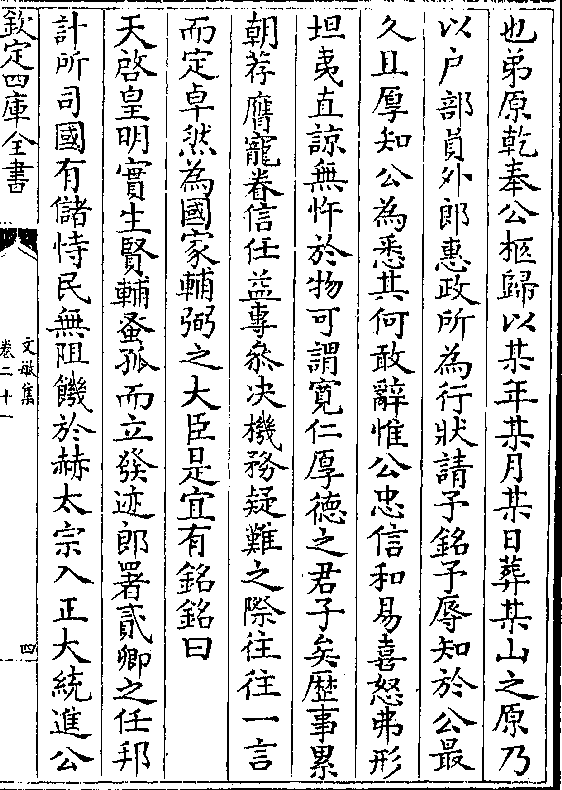 也弟原乾奉公柩歸以某年某月某日葬某山之原乃
以户部員外郎惠政所為行狀請予銘予辱知於公最
久且厚知公為悉其何敢辭惟公忠信和易喜怒弗形
坦夷直諒無忤於物可謂寛仁厚徳之君子矣歴事累
朝荐膺寵眷信任益專叅决機務疑難之際往往一言
而定卓然為國家輔弼之大臣是宜有銘銘曰
天啓皇明實生賢輔蚤孤而立發迹郎署貳卿之任邦
計所司國有儲恃民無阻饑於赫太宗入正大統進公
欽定四庫全書
文敏集
卷二十一
四